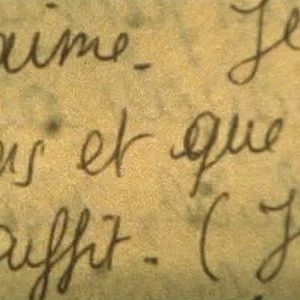 aime. Je
us et que
suffit. (J